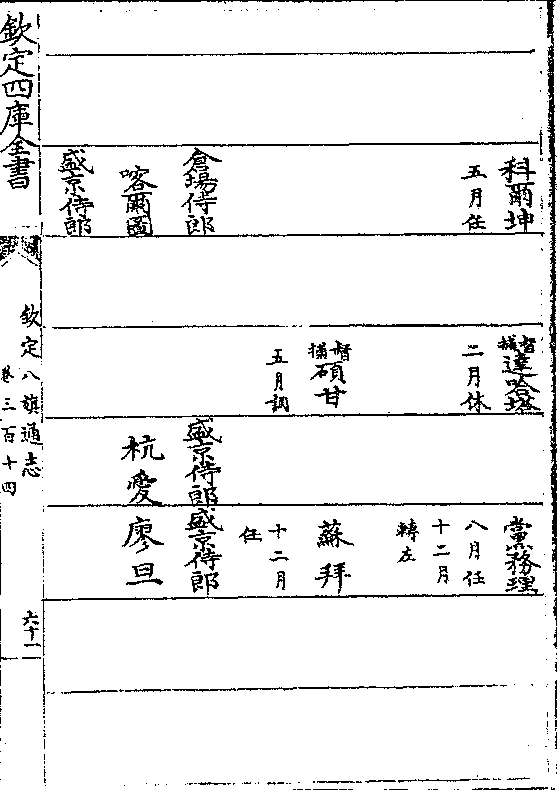 科爾坤
五月任
倉場侍郎
喀爾圖
盛京侍郎
督捕達哈塔
二月休
督捕碩甘
五月調
盛京侍郎
杭愛
黨務理
八月任
十二月
轉左
蘇拜
十二月
任
盛京侍郎
廖旦
欽定四庫全書
欽定八旗通志
卷三百十四
六十一